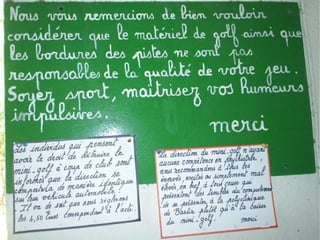 Nous vous remercions de bien vouloir
considérer que le matériel de golf ainsi que
les bordures des pistes ne sont pas
responsables de la qualité de votre jeu.
Soyez sport, maîtrisez vos humeurs
impulsives.
merci
Les individus qui pensent
avoir le droit de détruire le
mini-golf à coup de club sont
informés que la direction se
comportera de manière identique
sur leur véhicule automobile !
Il va de soit que nous réglerons
les 4,50 Euros correspondant à l'acte.
La direction du mini-golf n'ayant
aucune compétence en psychiatrie,
nous recommandons à tous les
énervés, excités ou simplement mal
élevés, en bref à tous ceux qui
présentent des troubles du comportement
de se présenter à la polyclinique
de plutôt qu'à la caisse
du mini-golf. merci